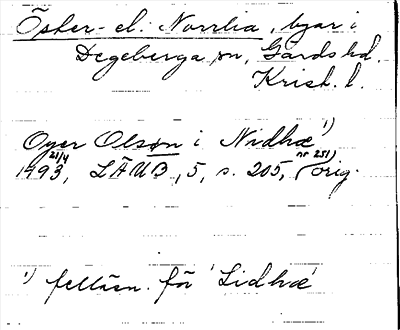 Öster- el. Norrlia, byar i
Degeberga sn, Gärds hd.
Krist. l.
Oyer Olsøn i Nndhæ 1)
21/4 1493, LÄUB, 5, s. 205, (nr 251) orig.
1) felläsn. för 'Lidhæ'